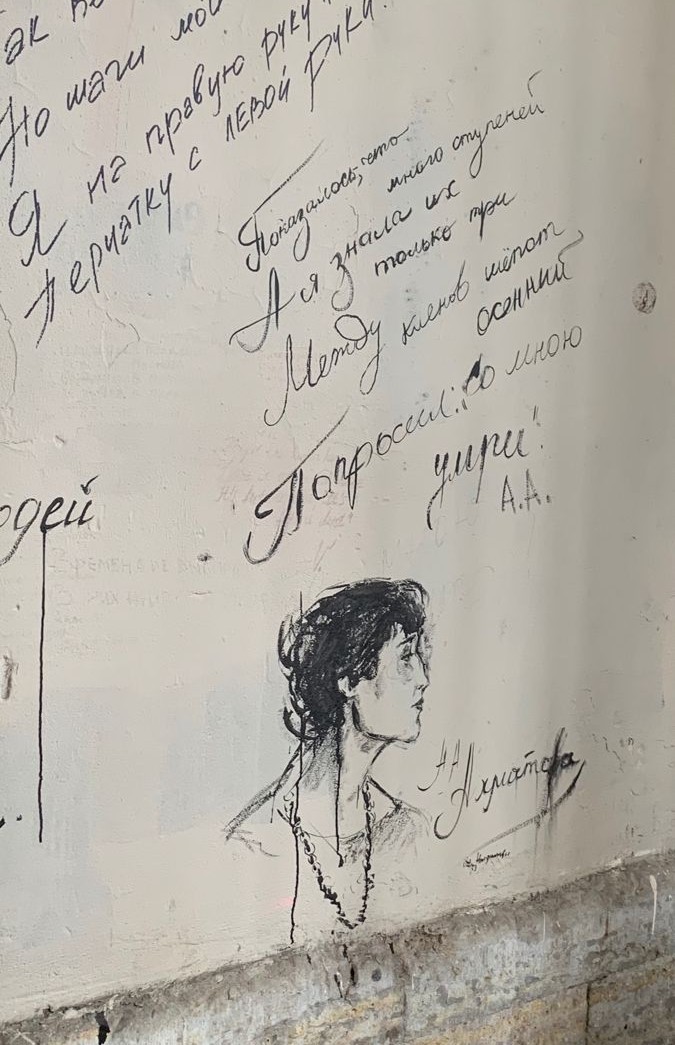 Но шаги мои
Я на правую руку
Перчатку с левой руки.
Показалось, что
много ступеней
А я знала их
только три
Между кленов шёпот
осенний
Попросил: „Со мною
умри"!
А.А.
одей
А А
Ахматова